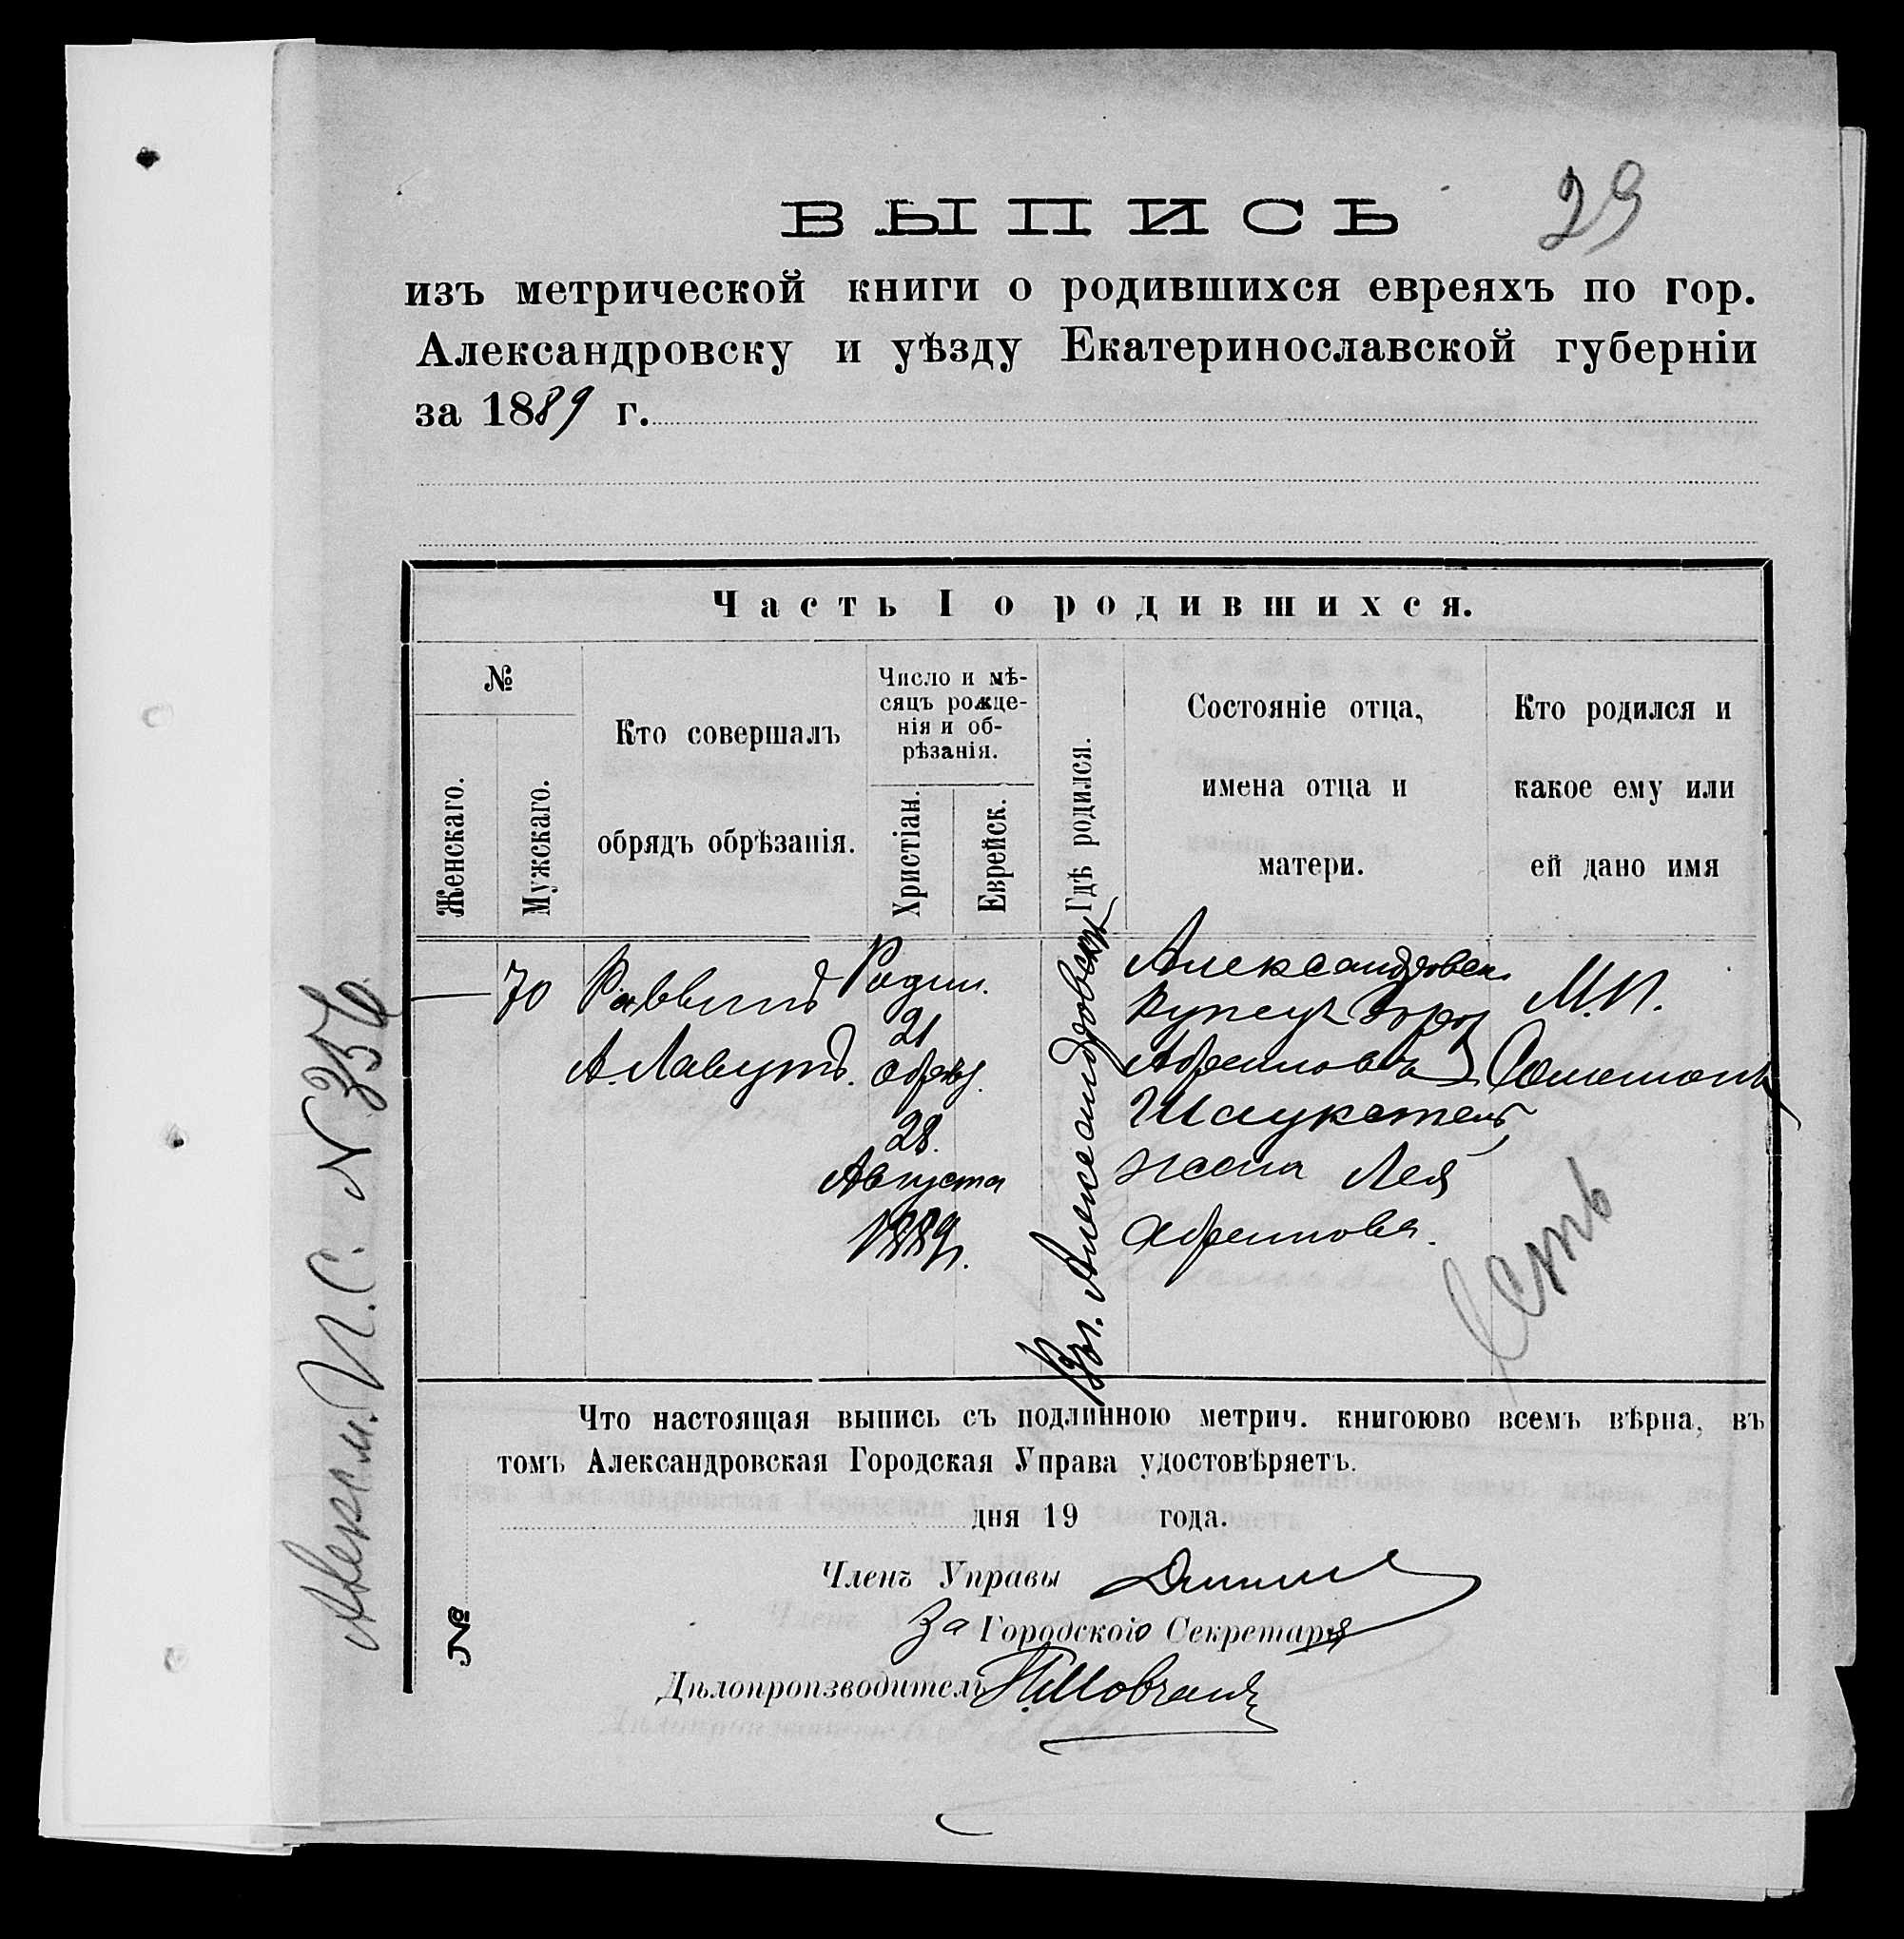 29
ВЫПИСЬ
изъ метрической книги о родившихся евреяхъ по гор.
Александровску и уѣзду Екатеринославской губерніи
за 1889 г.
Часть I о родившихся.
№
Женскаго.
Мужскаго.
Кто совершалъ
обрядъ обрѣзанія.
Число и мѣ-
сяцъ рожде-
нія и об-
рѣзанія.
Христіан.
Еврейск.
Гдѣ родился.
Состояніе отца,
имена отца и
матери.
Кто родился и
какое ему или
ей дано имя
70
Раввинъ
А. Лавутъ.
Родил.
21
обрѣз.
28.
Августа
1889г.
Въ г. Александровскѣ
Александровск.
Купецъ
Абрамовъ
жена Лея
Абрамова.
М.П.
Соломонъ
Есть
Что настоящая выпись съ подлинною метрич. книгоюво всемъ вѣрна, въ
томъ Александровская Городская Управа удостовѣряетъ.
дня 19 года.
Членъ Управы
За Городского Секретаря
Дѣлопроизводитель
№
N 356